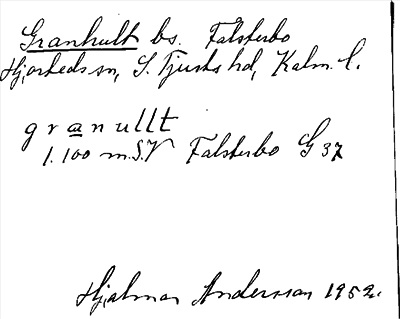 Granhult bs. Falsterbo
Hjorteds sn, S. Tjusts hd, Kalm. l.
granullt
1.100 m. S.V Falsterbo G 37
Hjalmar Andersson 1952.